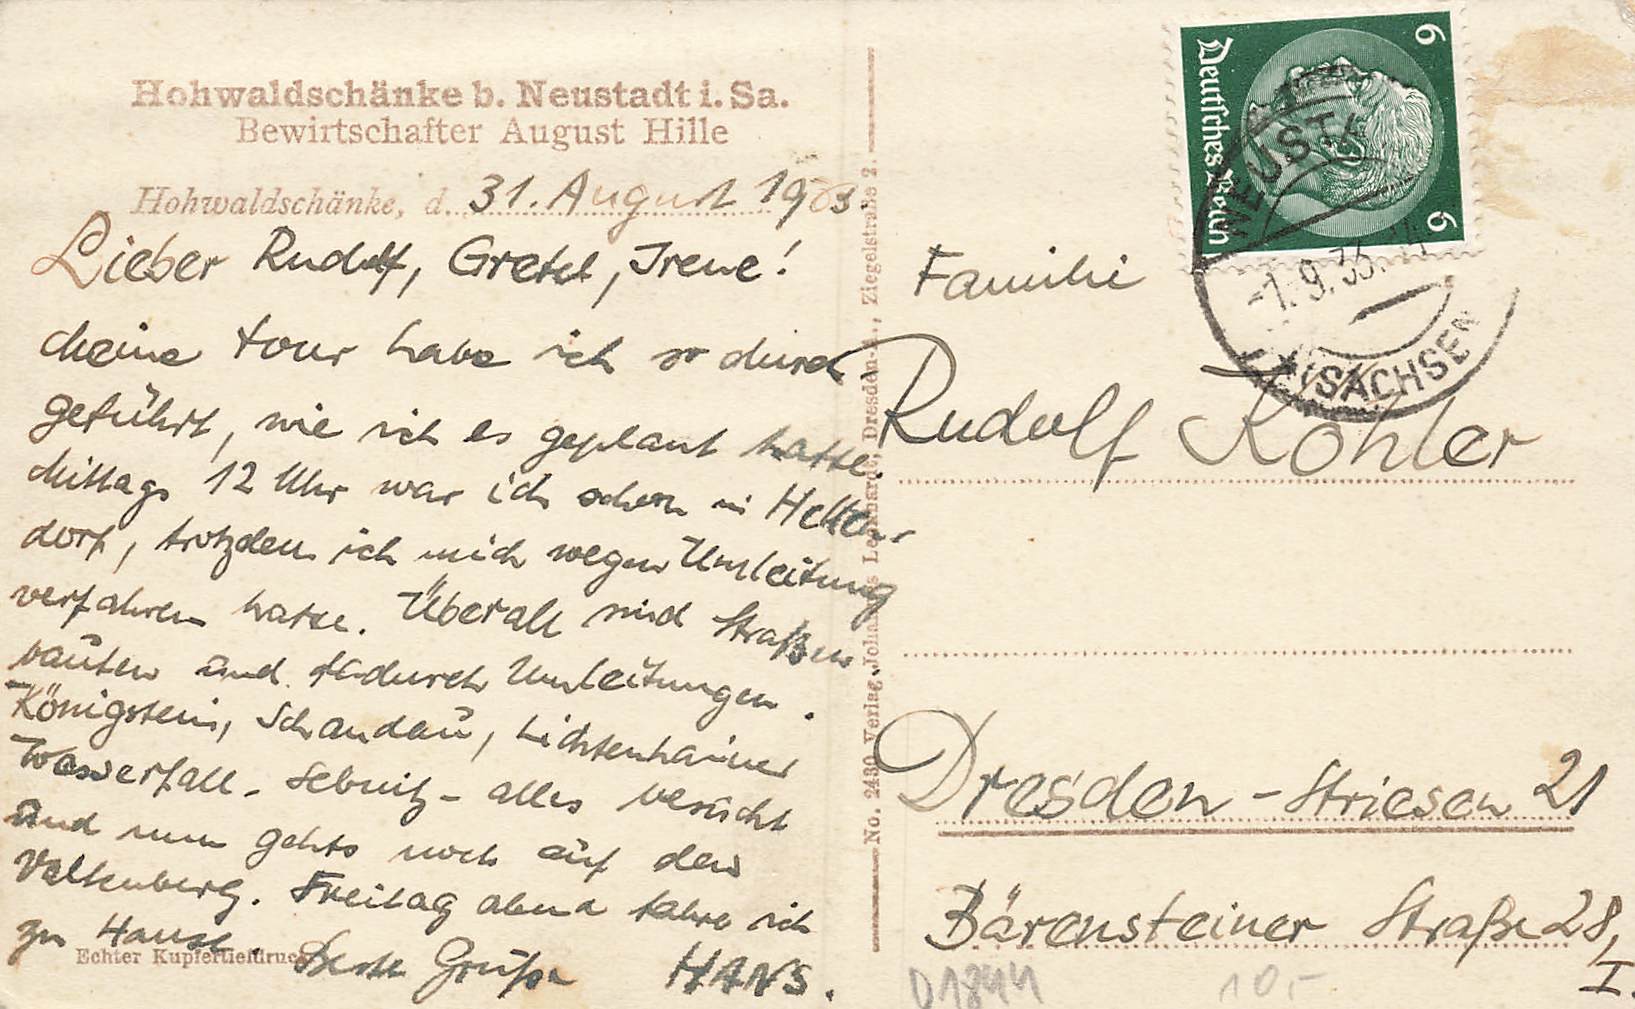 Hohwaldschänke b. Neustadt i. Sa.
Bewirtschafter August Hille
Hohwaldschänke, d. 31. August 193
Lieber Rudolf, Gretel, Irene!
Meine Tour habe ich so durch
geführt, wie ich es geplant hatte.
Mittags 12 Uhr war ich schon in Hellen
dorf, trotzdem ich mich wegen Umleitung
verfahren hatte. Überall sind Straßen
bauten und dadurch Umleitungen.
Königstein, Schandau, Lichtenhainer
Wasserfall - Sebnitz - alles besucht
und nun gehts noch auf den
Valtenberg. Freitag abend fahre ich
zu Hause. Beste Grüße HANS.
Echter Kupfertiefdruck
No. 2430 Verlag Johannes Leonhardi, Dresden-N., Ziegelstraße 2.
6
Deutsches Reich
6
NEUSTA
-1. 9. 36.
(SACHSEN
Familie
Rudolf Köhler
Dresden - Striesen 21
Bärensteiner Straße 28,
I.
D1844 10,-